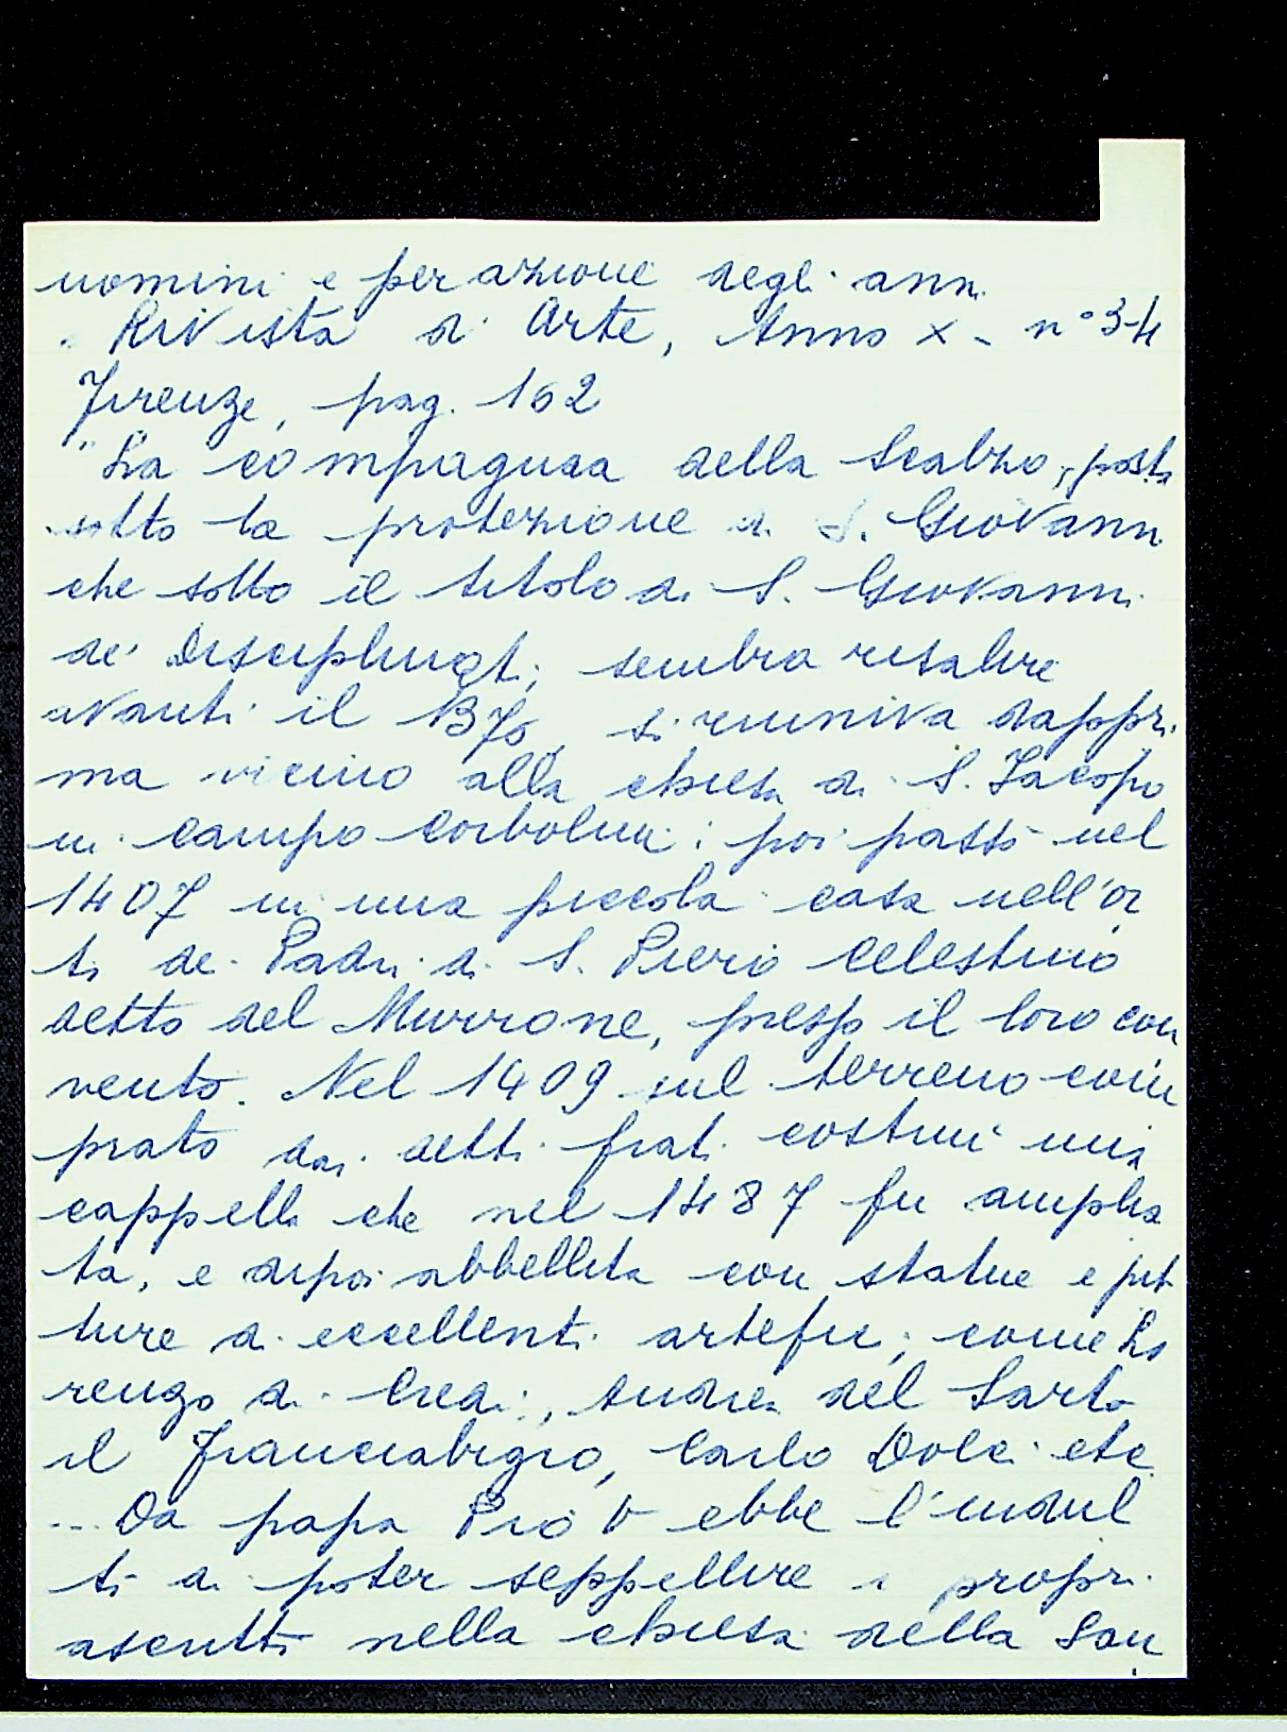 uomini e per azione degli anni
Rivista d' Arte, Anno X - n° 3-4
Firenze, pag. 162
"La compagnia dello Scalzo, posta
sotto la protezione di S. Giovanni
che sotto il titolo di S. Giovanni
de' Disciplinati, sembra risalire
avanti il 1370, si riuniva dappri
ma vicino alla chiesa di S. Jacopo
in campo Corbolini; poi passò nel
1407 in una piccola casa nell'or
to dei Padri di S. Piero Celestino
detto del Murrone, presso il loro con
vento. Nel 1409 sul terreno com
prato dai detti frati costruì una
cappella che nel 1487 fu amplia
ta, e dipoi abbellita con statue e pit
ture di eccellenti artefici, come Lo
renzo di Credi, Andrea del Sarto
il Franciabigio, Carlo Dolci etc
... Da papa Pio V ebbe l'indul
to di poter seppellire i propri
ascritti nella chiesa della San